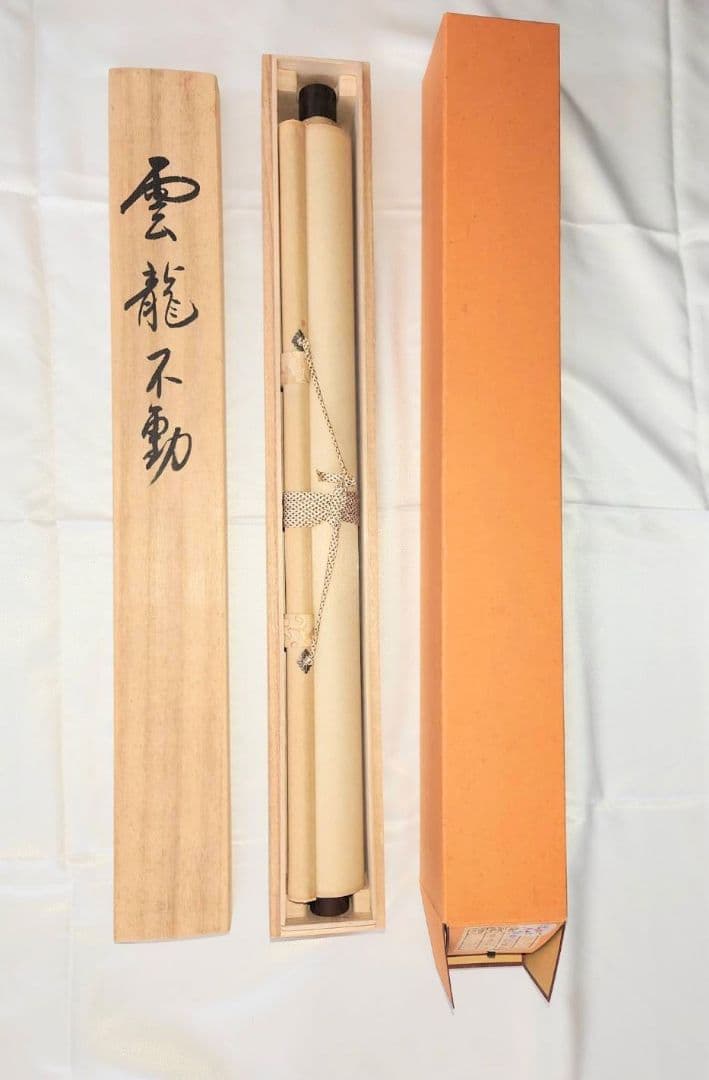 雲龍不動